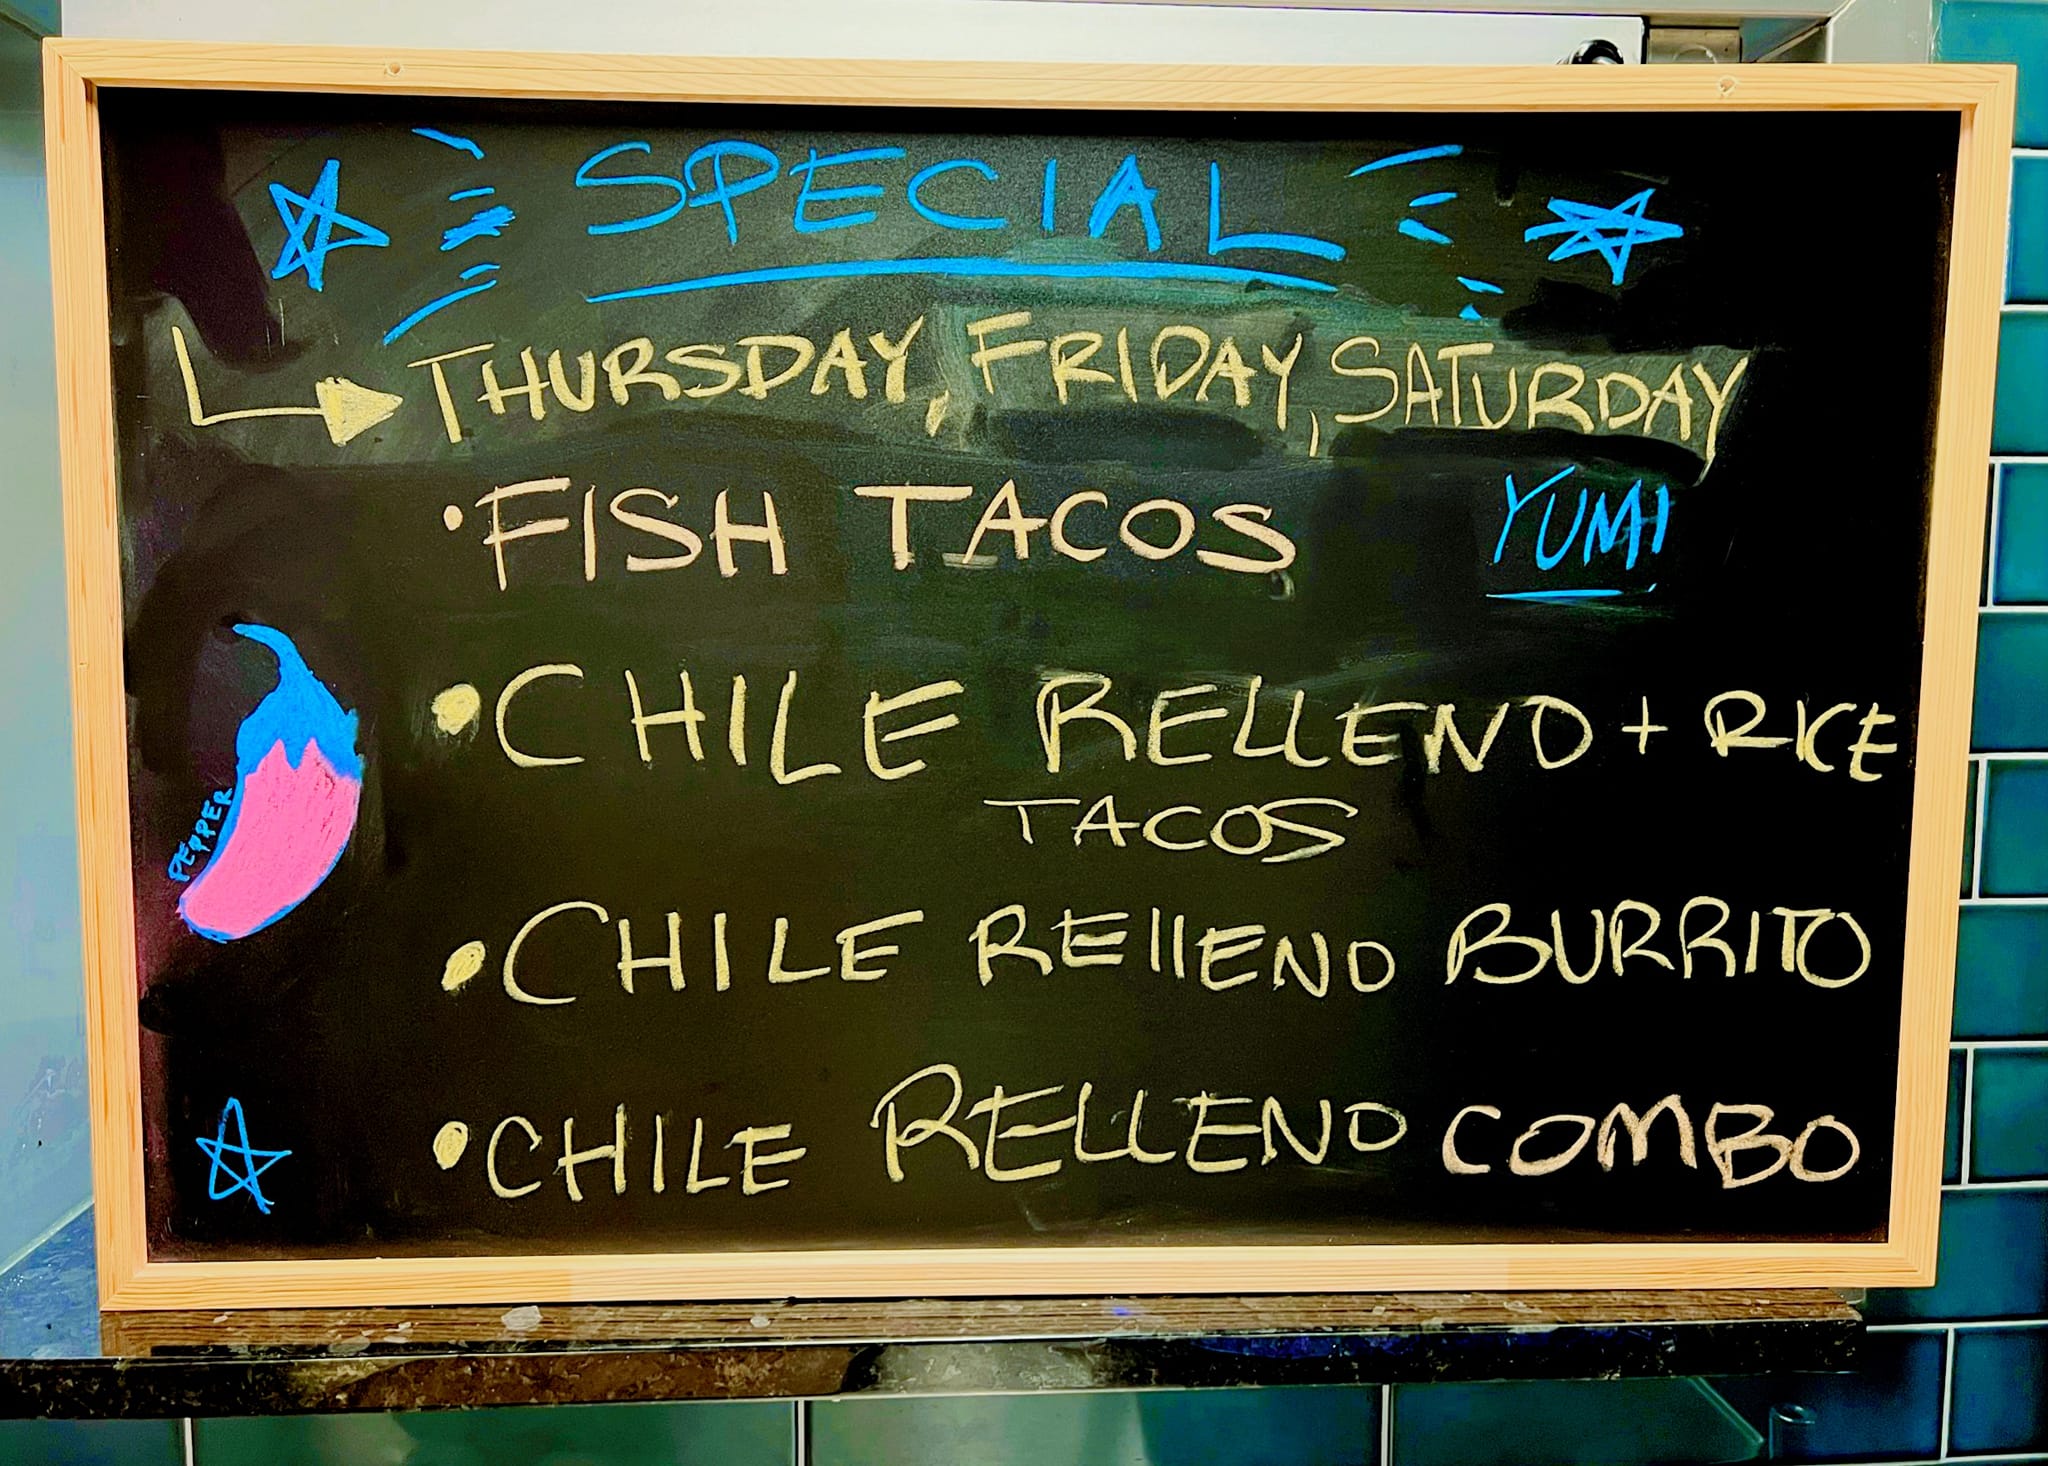 SPECIAL
THURSDAY, FRIDAY, SATURDAY
• FISH TACOS
YUM!
• CHILE RELLENO + RICE
TACOS
PEPPER
• CHILE RELLENO BURRITO
• CHILE RELLENO COMBO